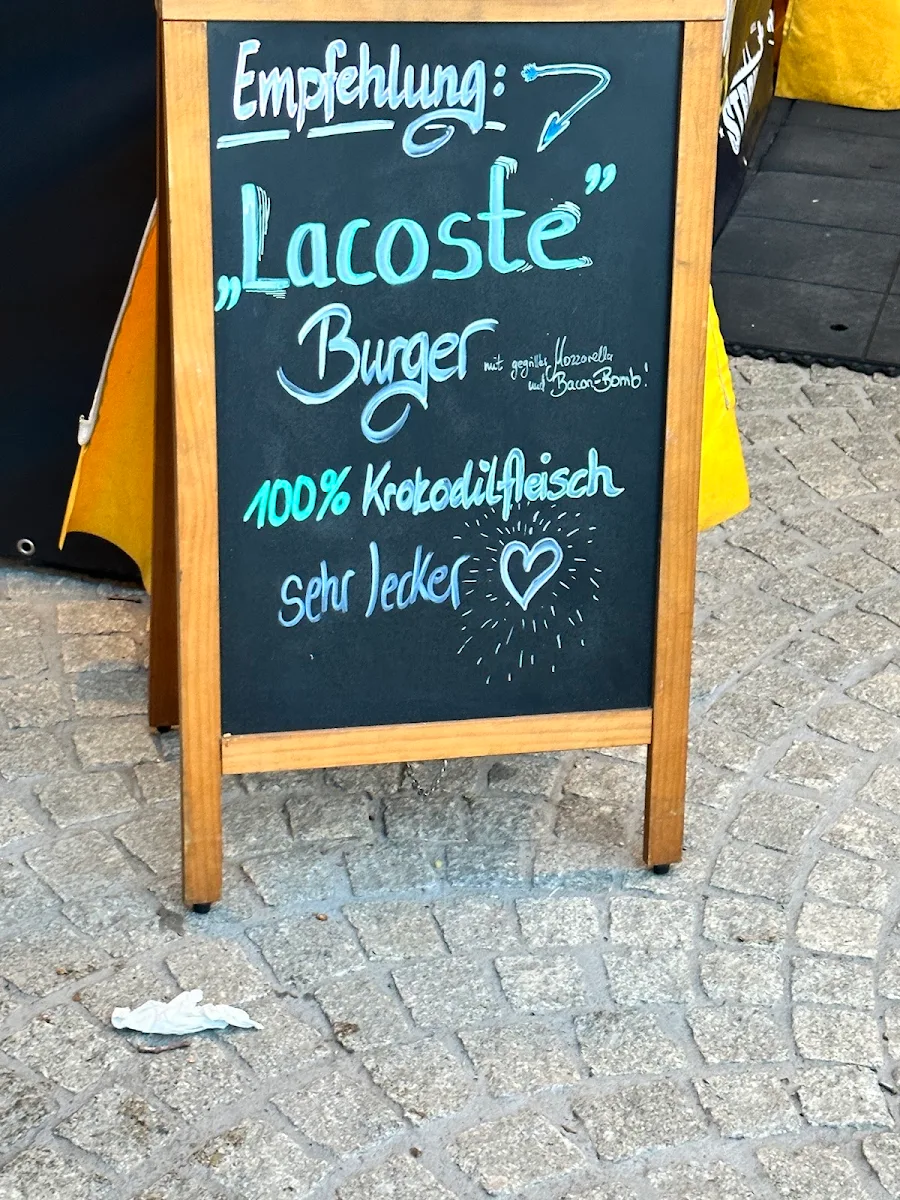 Empfehlung:
„Lacoste”
Burger
mit gegrilltes Mozzarella
und Bacon-Bomb!
100% Krokodilfleisch
sehr lecker